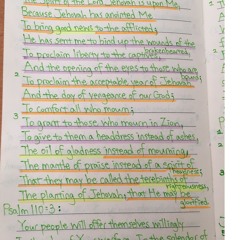 The Spirit of the Lord Jehovah is upon Me,
Because Jehovah has anointed Me
To bring good news to the afflicted;
He has sent me to bind up the wounds of the
brokenhearted,
To proclaim liberty to the captives,
2 And the opening of the eyes to those who are
bound;
To proclaim the acceptable year of Jehovah
And the day of vengeance of our God;
To comfort all who mourn;
3 To grant to those who mourn in Zion,
To give to them a headdress instead of ashes,
The oil of gladness instead of mourning,
The mantle of praise instead of a spirit of
heaviness;
That they may be called the terebinths of
righteousness,
The planting of Jehovah, that He may be
glorified.
Psalm 110:3:
Your people will offer themselves willingly
in the splendor of